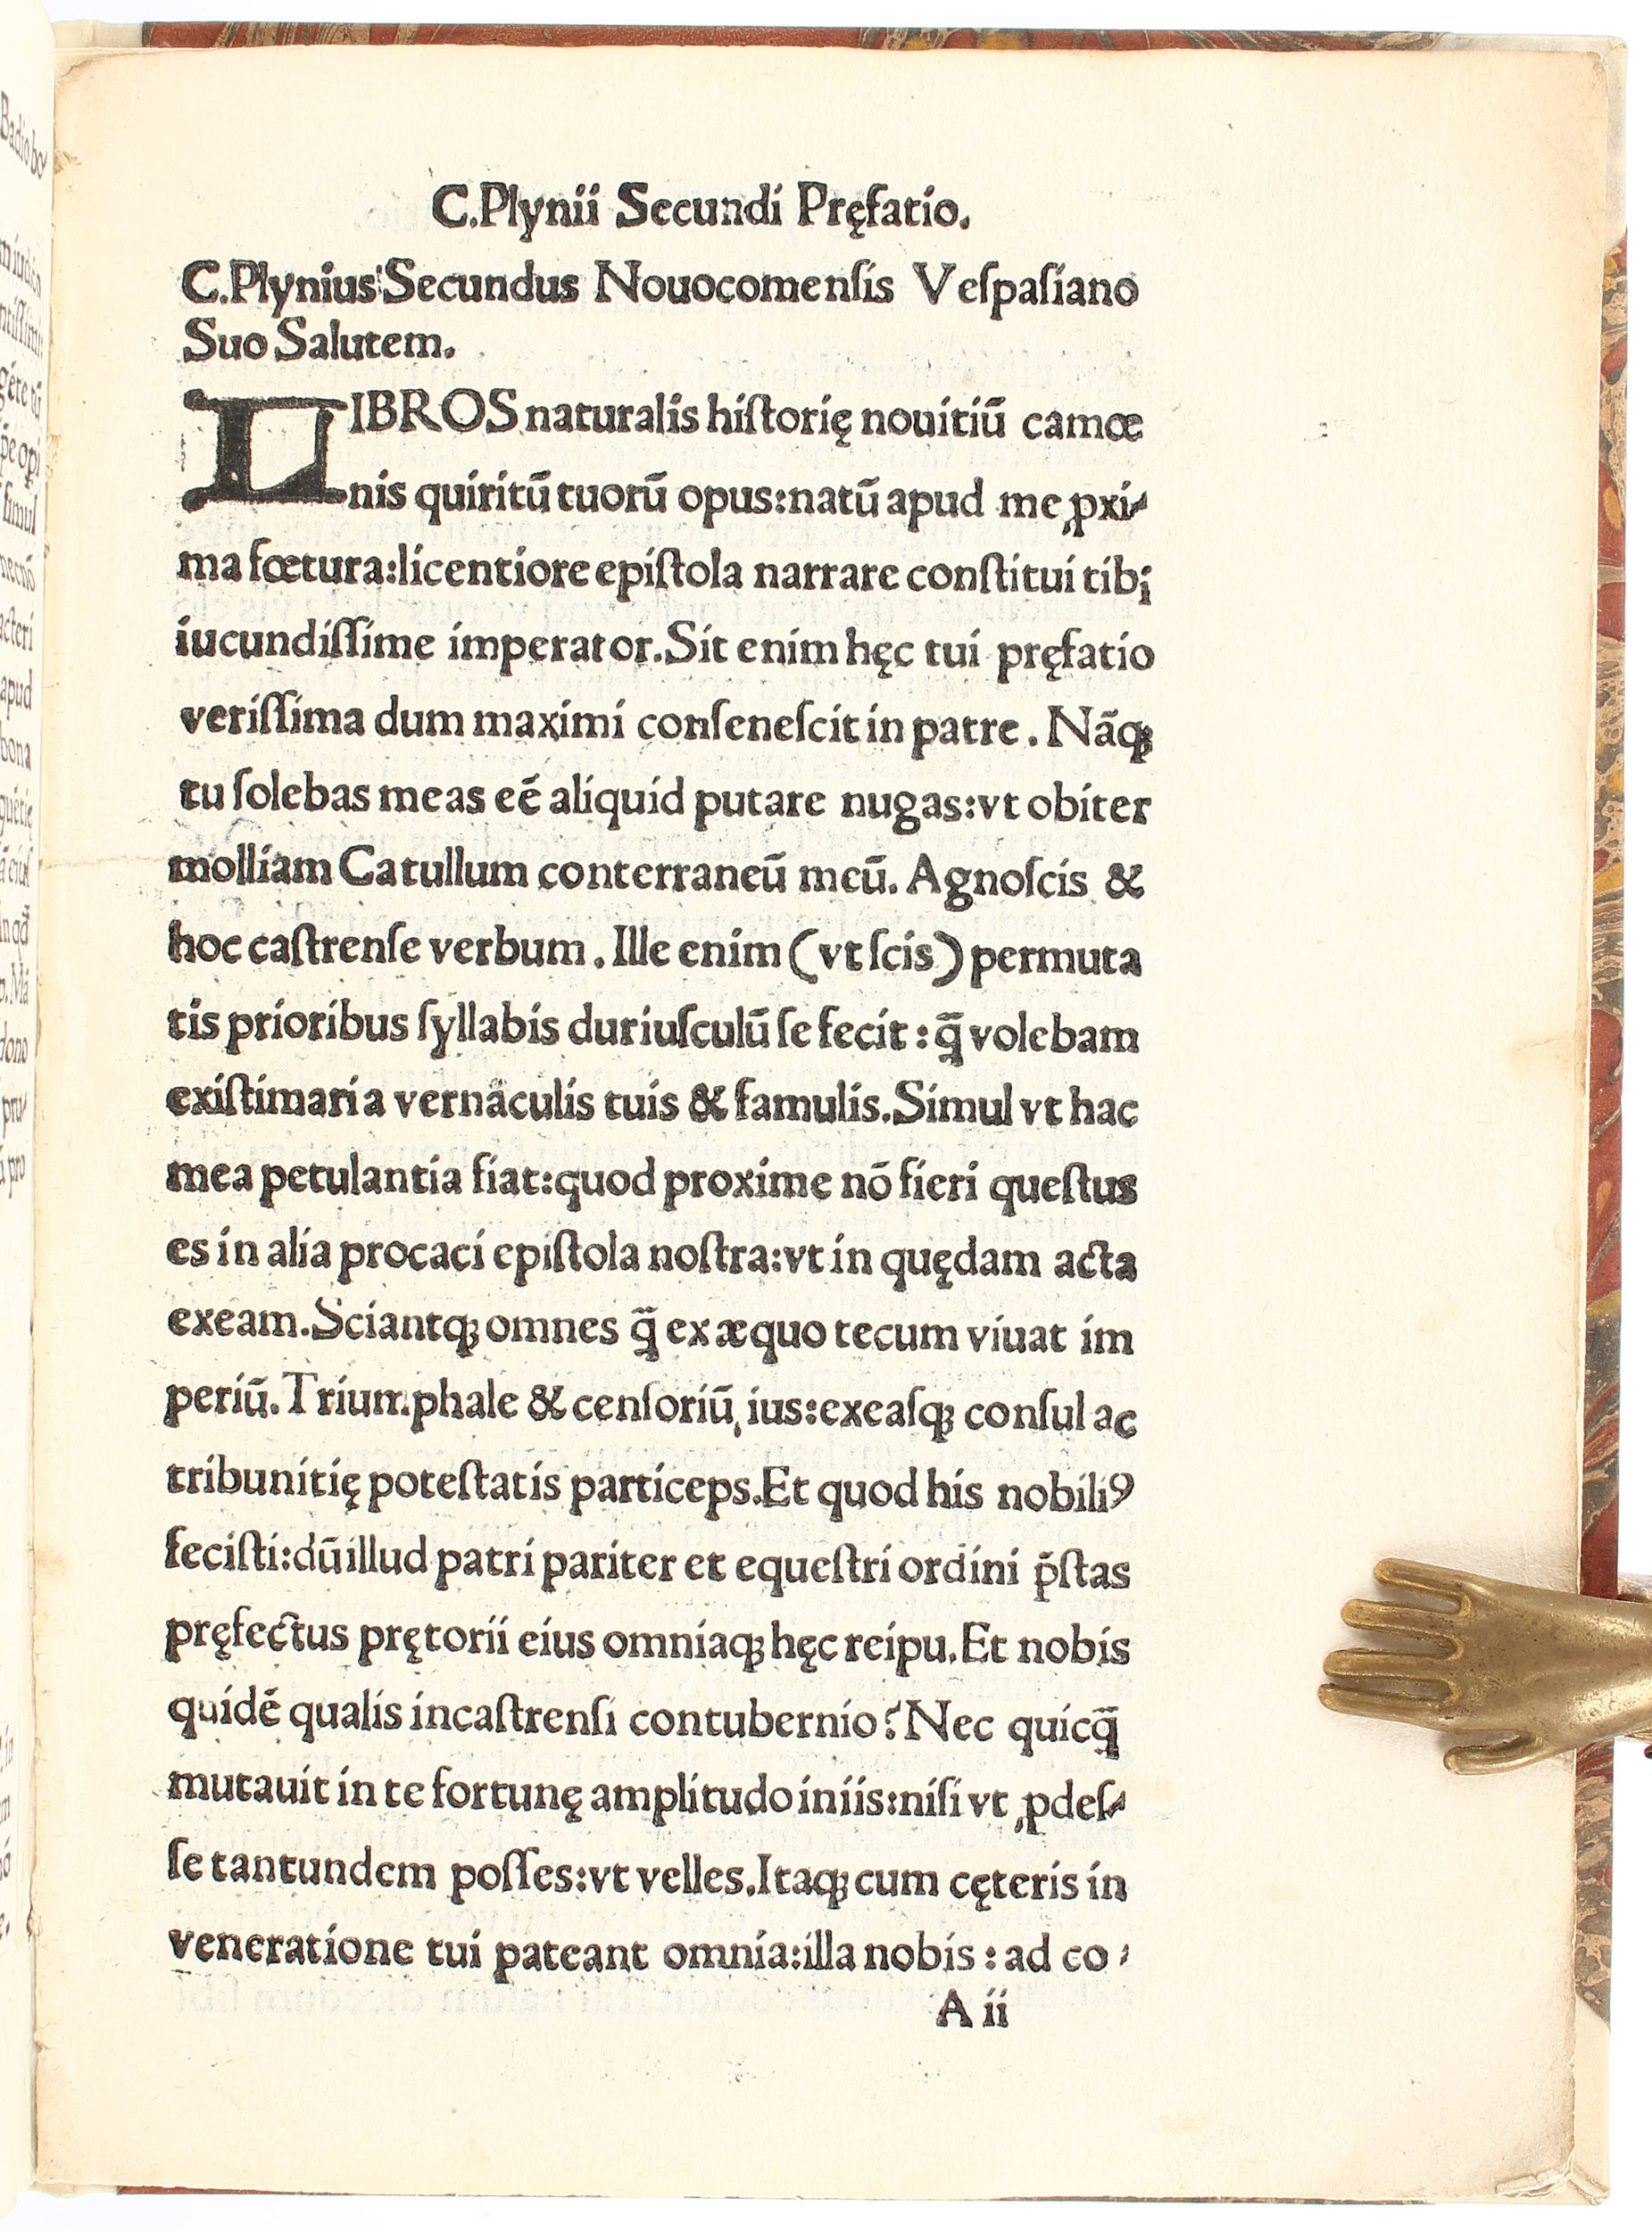 C.Plynii Secundi Pręfatio.
C.Plynius Secundus Nouocomenſis Veſpaſiano
Suo Salutem.
LIBROS naturalis hiſtorię nouitiū camœ
nis quiritū tuorū opus:natū apud me ꝓxi⸗
ma fœtura:licentiore epiſtola narrare conſtitui tibi
iucundiſſime imperator.Sit enim hęc tui pręfatio
veriſſima dum maximi conſeneſcit in patre. Nāqꝫ
tu ſolebas meas eē aliquid putare nugas:vt obiter
molliam Catullum conterraneū meū. Agnoſcis &
hoc caſtrenſe verbum. Ille enim (vt ſcis) permuta
tis prioribus ſyllabis duriuſculū ſe fecit : q̄ volebam
exiſtimari a vernaculis tuis & famulis.Simul vt hac
mea petulantia fiat:quod proxime nō fieri queſtus
es in alia procaci epiſtola noſtra:vt in quędam acta
exeam.Sciantqꝫ omnes q̄ ex æquo tecum viuat im
periū.Triumphale & cenſoriū ius:exeaſqꝫ conſul ac
tribunitię poteſtatis particeps.Et quod his nobiliꝰ
feciſti:dū illud patri pariter et equeſtri ordini p̄ſtas
pręfectus prętorii eius omniaqꝫ hęc reipu.Et nobis
quidē qualis in caſtrenſi contubernio? Nec quicq̄
mutauit in te fortunę amplitudo in iis:niſi vt ꝓdeſ⸗
ſe tantundem poſſes:vt velles.Itaqꝫ cum cęteris in
veneratione tui pateant omnia:illa nobis : ad co⸗
A ii